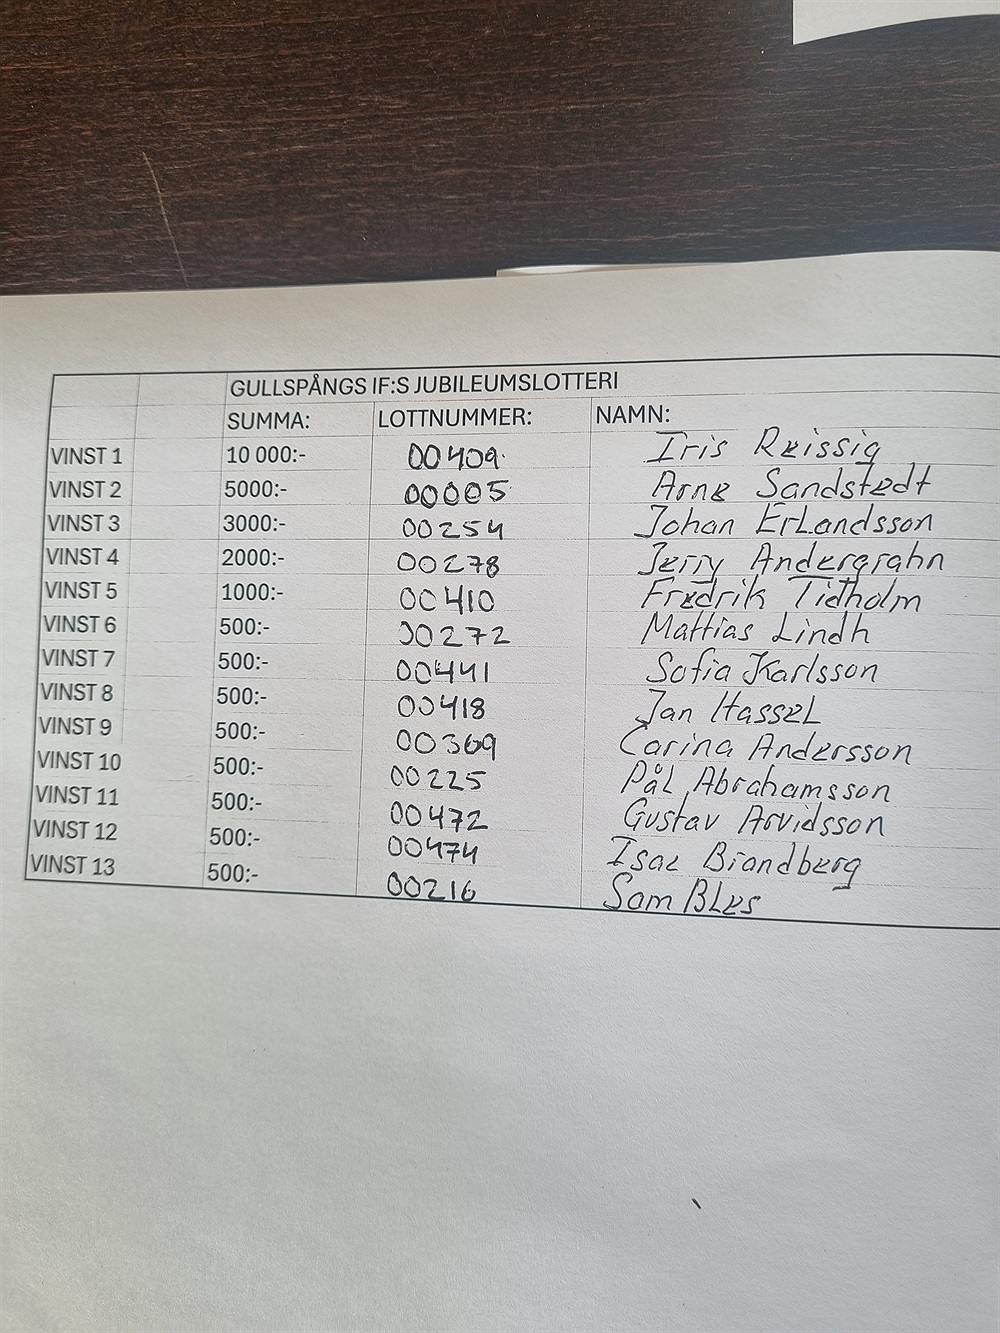 GULLSPÅNGS IF:S JUBILEUMSLOTTERI
SUMMA: LOTTNUMMER: NAMN:
VINST 1 10 000:- 00409 Iris Reissig
VINST 2 5000:- 00005 Arne Sandstedt
VINST 3 3000:- 00254 Johan Erlandsson
VINST 4 2000:- 00278 Jerry Andergrahn
VINST 5 1000:- 00410 Fredrik Tidholm
VINST 6 500:- 00272 Mattias Lindh
VINST 7 500:- 00441 Sofia Karlsson
VINST 8 500:- 00418 Jan Hassel
VINST 9 500:- 00369 Carina Andersson
VINST 10 500:- 00225 Pål Abrahamsson
VINST 11 500:- 00472 Gustav Arvidsson
VINST 12 500:- 00474 Isac Brandberg
VINST 13 500:- 00216 Sam Bles